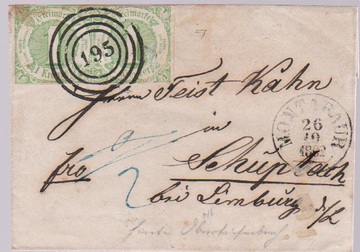 Freimarke Freimarke
195
Herrn Feist Kahn
in
MONTABAUR
26
10
fro Schupbach
2
bei Limburg a/L